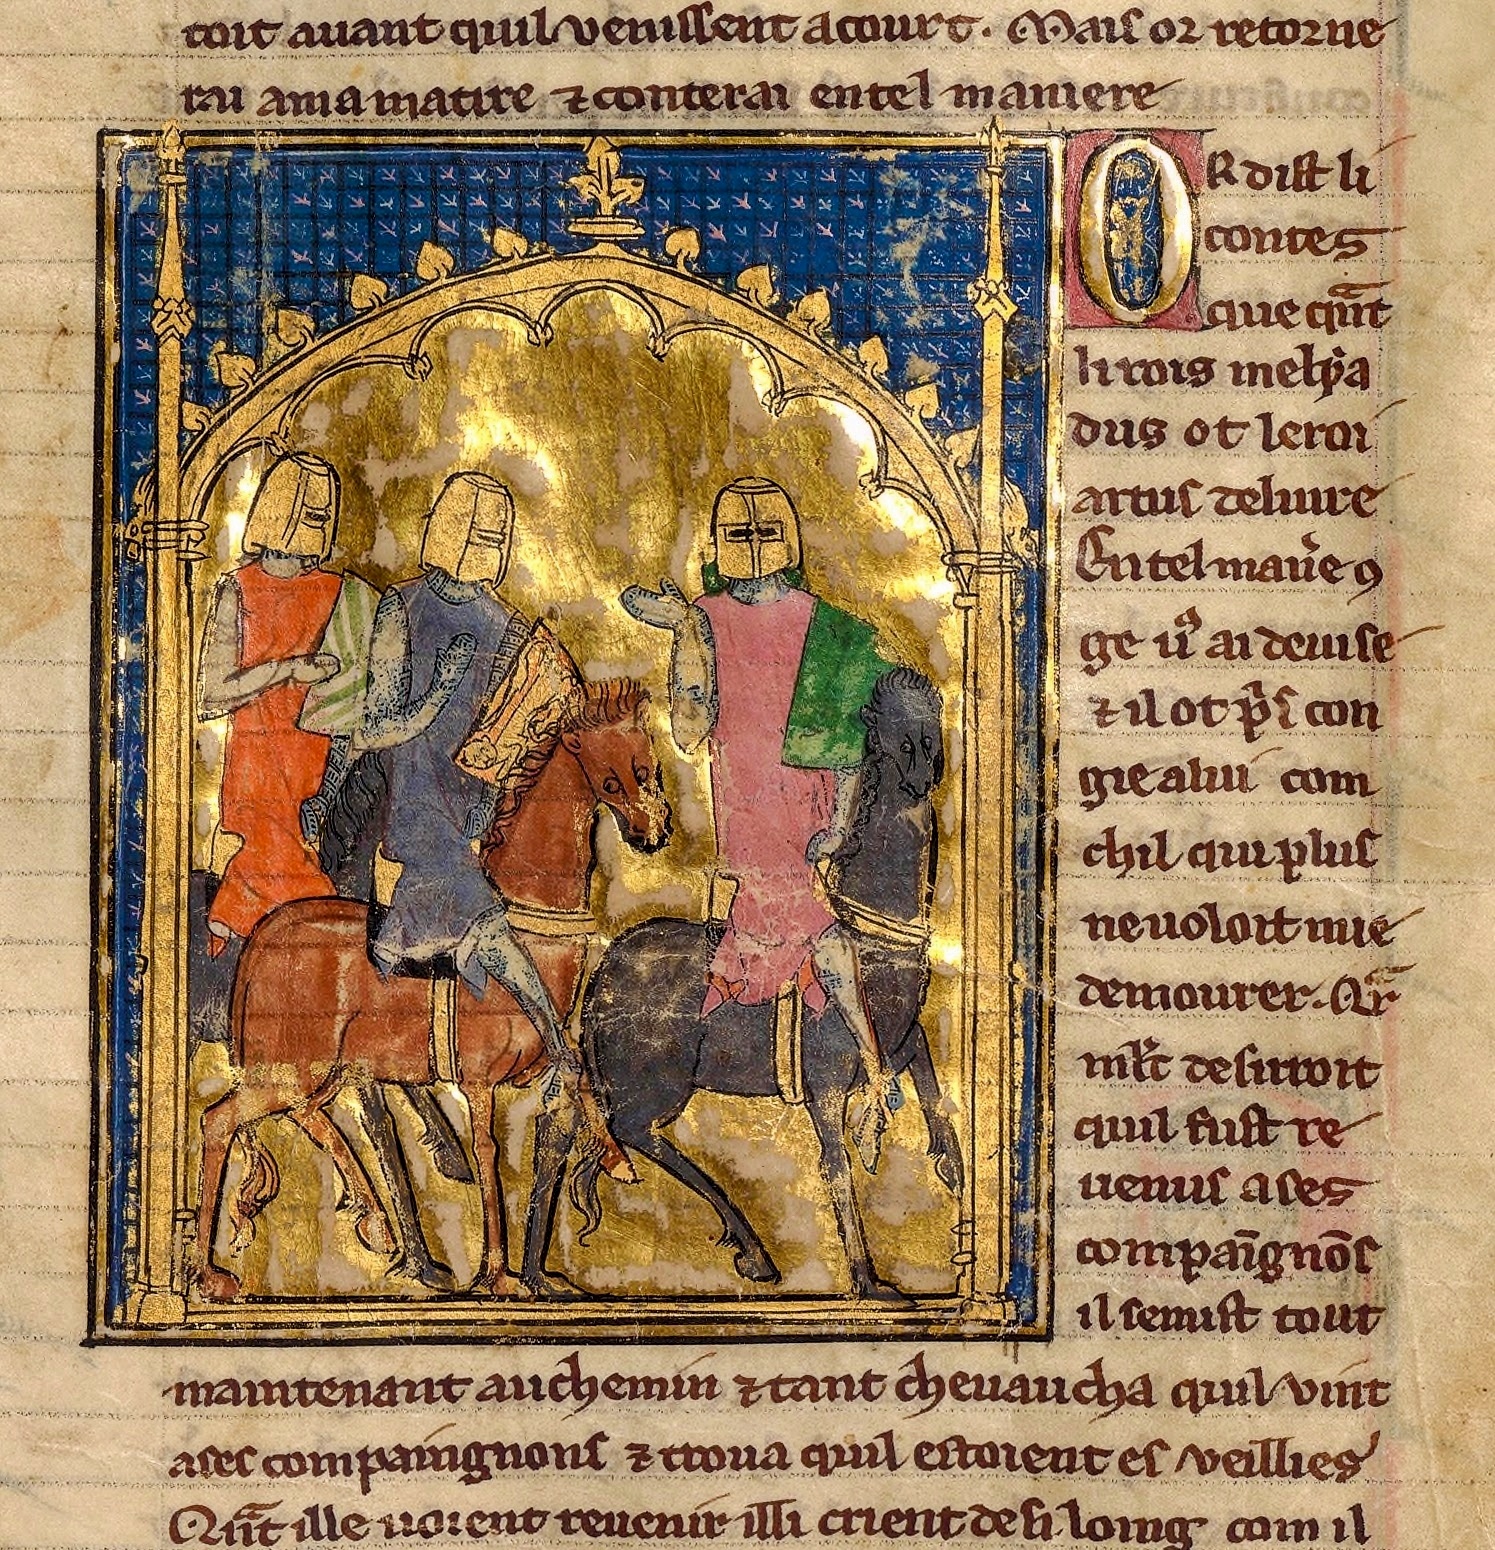 toit auant quil uenissent a court. Mais or retorne
rai a ma matire ⁊ conterai en tel maniere
OR dist li
contes
que q̃nt
li rois melẏa
dus ot le roi
artus deliure
En tel man̄e ꝯ
ge uͦ ai deuise
⁊ il ot p̃s con
gie a lui com
chil qui plus
ne uoloit mie
demourer. Q̃r
ml̃t desirroit
quil fust re
uenus a ses
compaīgnōs
il se mist tout
maintenant au chemin ⁊ tant cheuaucha quil uint
a ses compaingnons ⁊ troua quil estoient esueillies
Q̃nt il le uoient reuenir illi crient de si loing com il